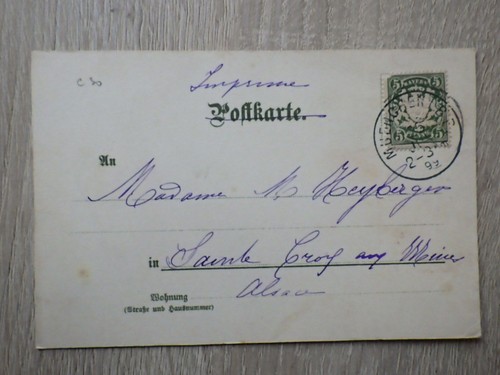 C 30
Imprimé
Postkarte.
5 5
5 5
MUENCHEN
2-3
98
An
Madame M Heyberger
in Sainte Croix aux Mines
Alsace
Wohnung
(Straße und Hausnummer)